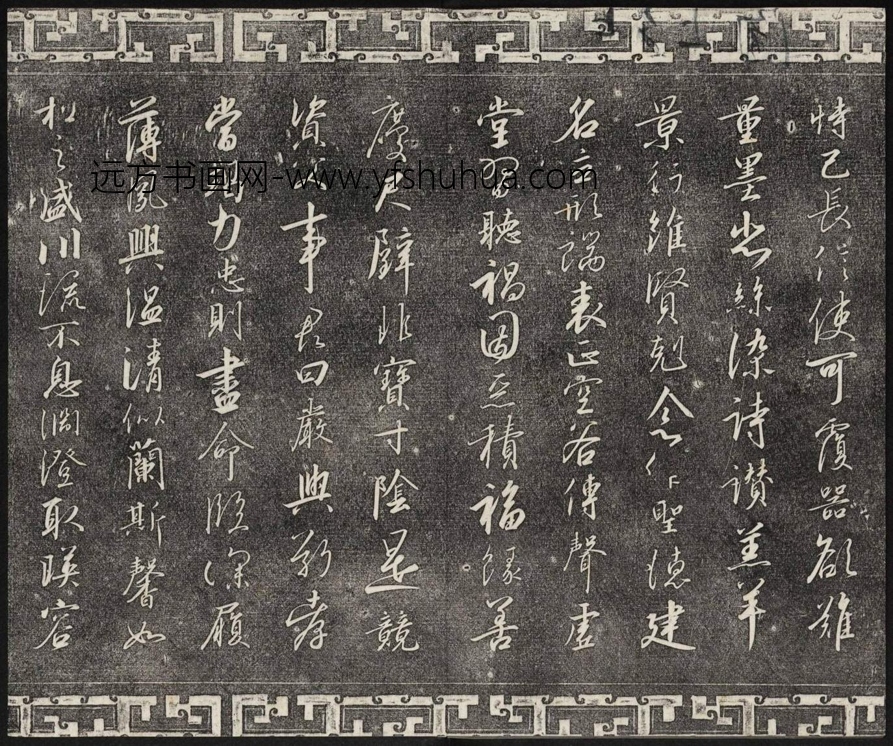 恃己長信使可覆器欲難
量墨悲絲染詩讚羔羊
景行維賢剋念作聖德建
名立形端表正空谷傳聲虛
堂習聽禍因惡積福緣善
慶尺璧非寶寸陰是競
資父事君曰嚴與敬孝
當竭力忠則盡命臨深履
薄夙興溫清似蘭斯馨如
松之盛川流不息淵澄取暎容
远方书画网-www.yfshuhua.com